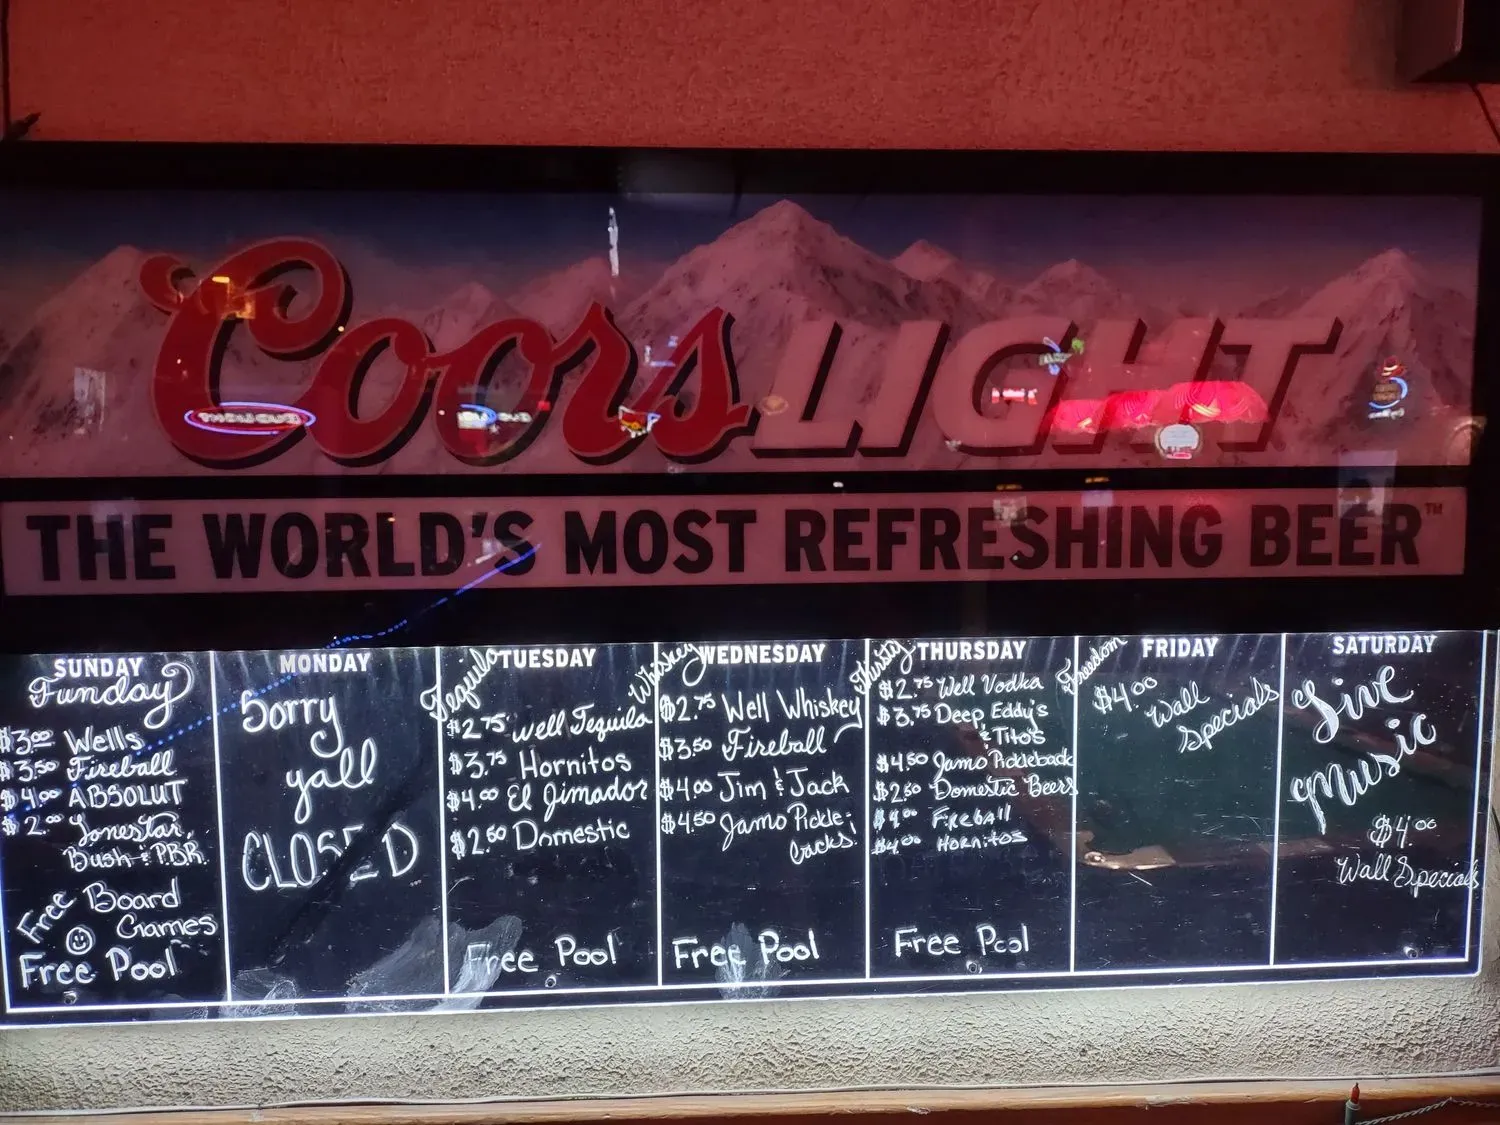 Coors LIGHT
THE WORLD'S MOST REFRESHING BEER™
SUNDAY
Funday
$3.00 Wells
$3.50 Fireball
$4.00 ABSOLUT
$2.00 Lonestar,
Bush & PBR.
Free Board
Games
Free Pool
MONDAY
Sorry
yall
CLOSED
Tequila TUESDAY
$2.75 Well Tequila
$3.75 Hornitos
$4.00 El Jimador
$2.50 Domestic
Free Pool
Whiskey WEDNESDAY
$2.75 Well Whiskey
$3.50 Fireball
$4.00 Jim & Jack
$4.50 Jamo Pickle-
backs.
Free Pool
Thirsty THURSDAY
$2.75 Well Vodka
$3.75 Deep Eddy's
& Tito's
$4.50 Jamo Pickleback
$2.50 Domestic Beers
$4.00 Fireball
$4.00 Hornitos
Free Pool
Freedom FRIDAY
$4.00 Wall
Specials
SATURDAY
Live
Music
$4.00
Wall Specials